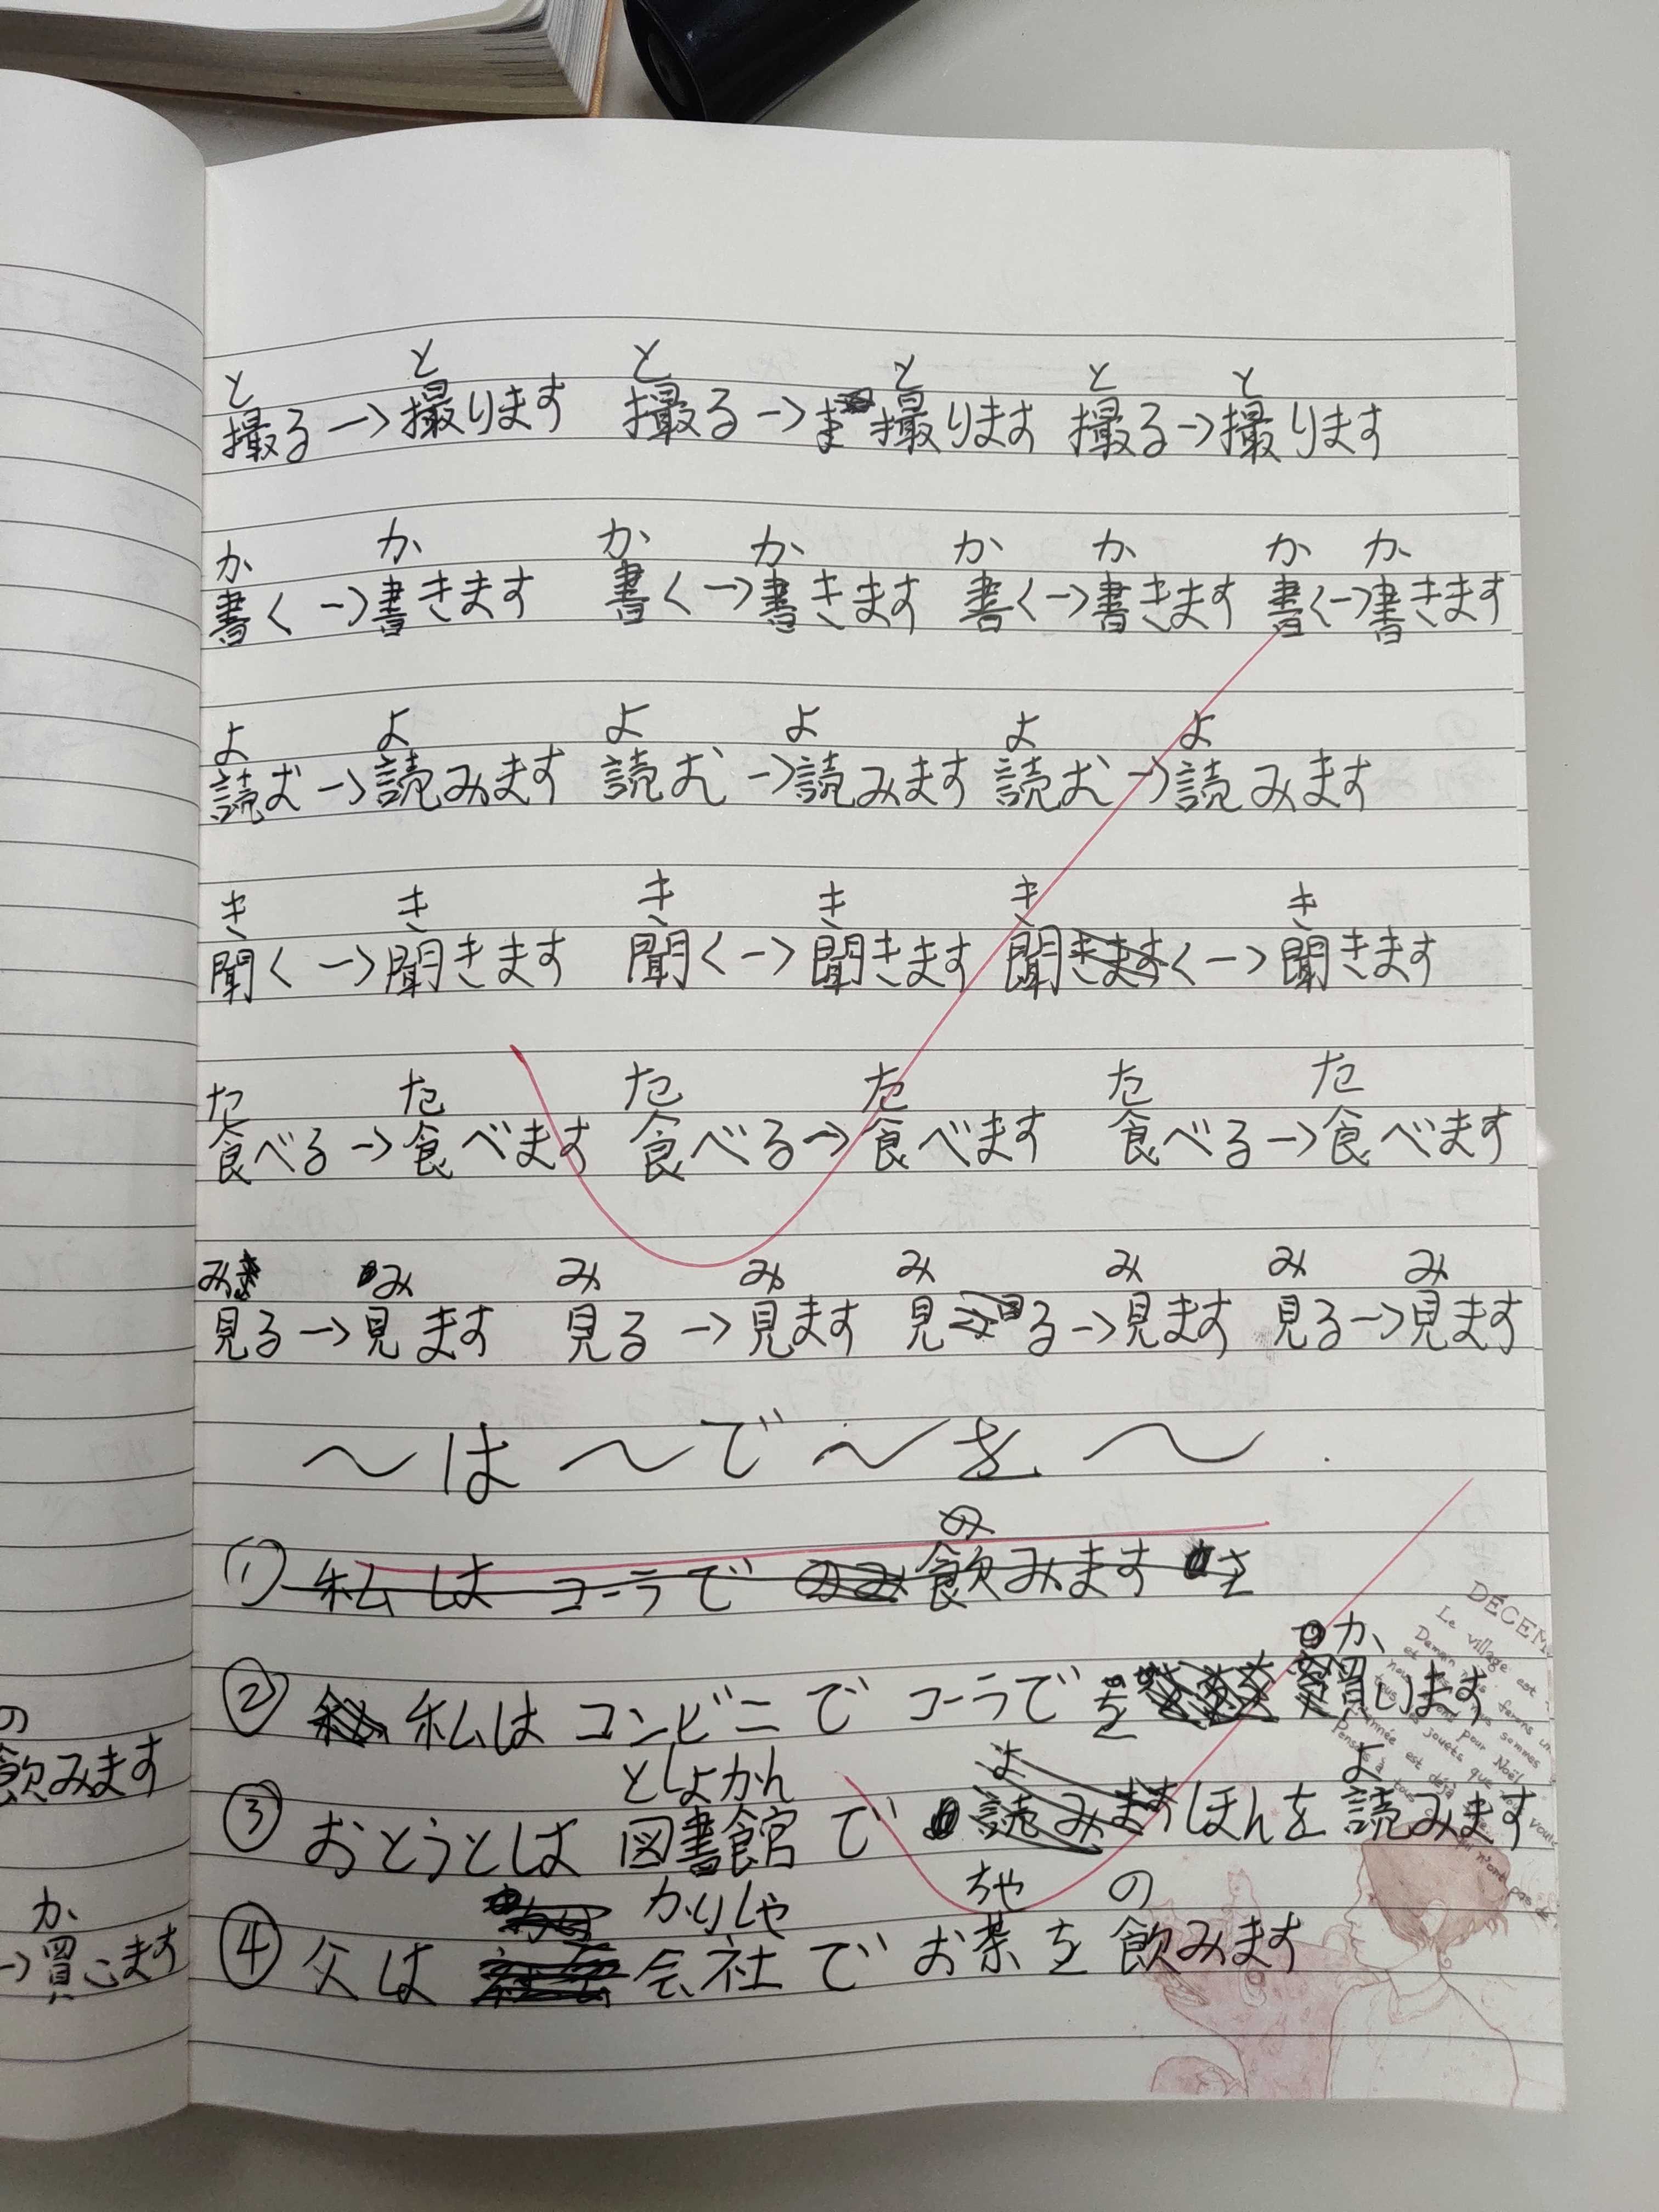 と と と と と と
撮る→撮ります 撮る→ま撮ります 撮る→撮ります
か か か か か か か か
書く→書きます 書く→書きます 書く→書きます 書く→書きます
よ よ よ よ よ よ
読む→読みます 読む→読みます 読む→読みます
き き き き き き
聞く→聞きます 聞く→聞きます 聞きますく→聞きます
た た た た た た
食べる→食べます 食べる→食べます 食べる→食べます
み み み み み み み み
見る→見ます 見る→見ます 見る→見ます 見る→見ます
～は～で～を～.
の
① 私は コーラで のみ 飲みます を
か
② 私は コンビニで コーラで を 買います
としょかん よ よ
③ おとうとは 図書館で 読みます ほんを 読みます
かいしゃ ちゃ の
④ 父は 会社で お茶を 飲みます
の
飲みます
か
→買います
DÉCEM
Le village est